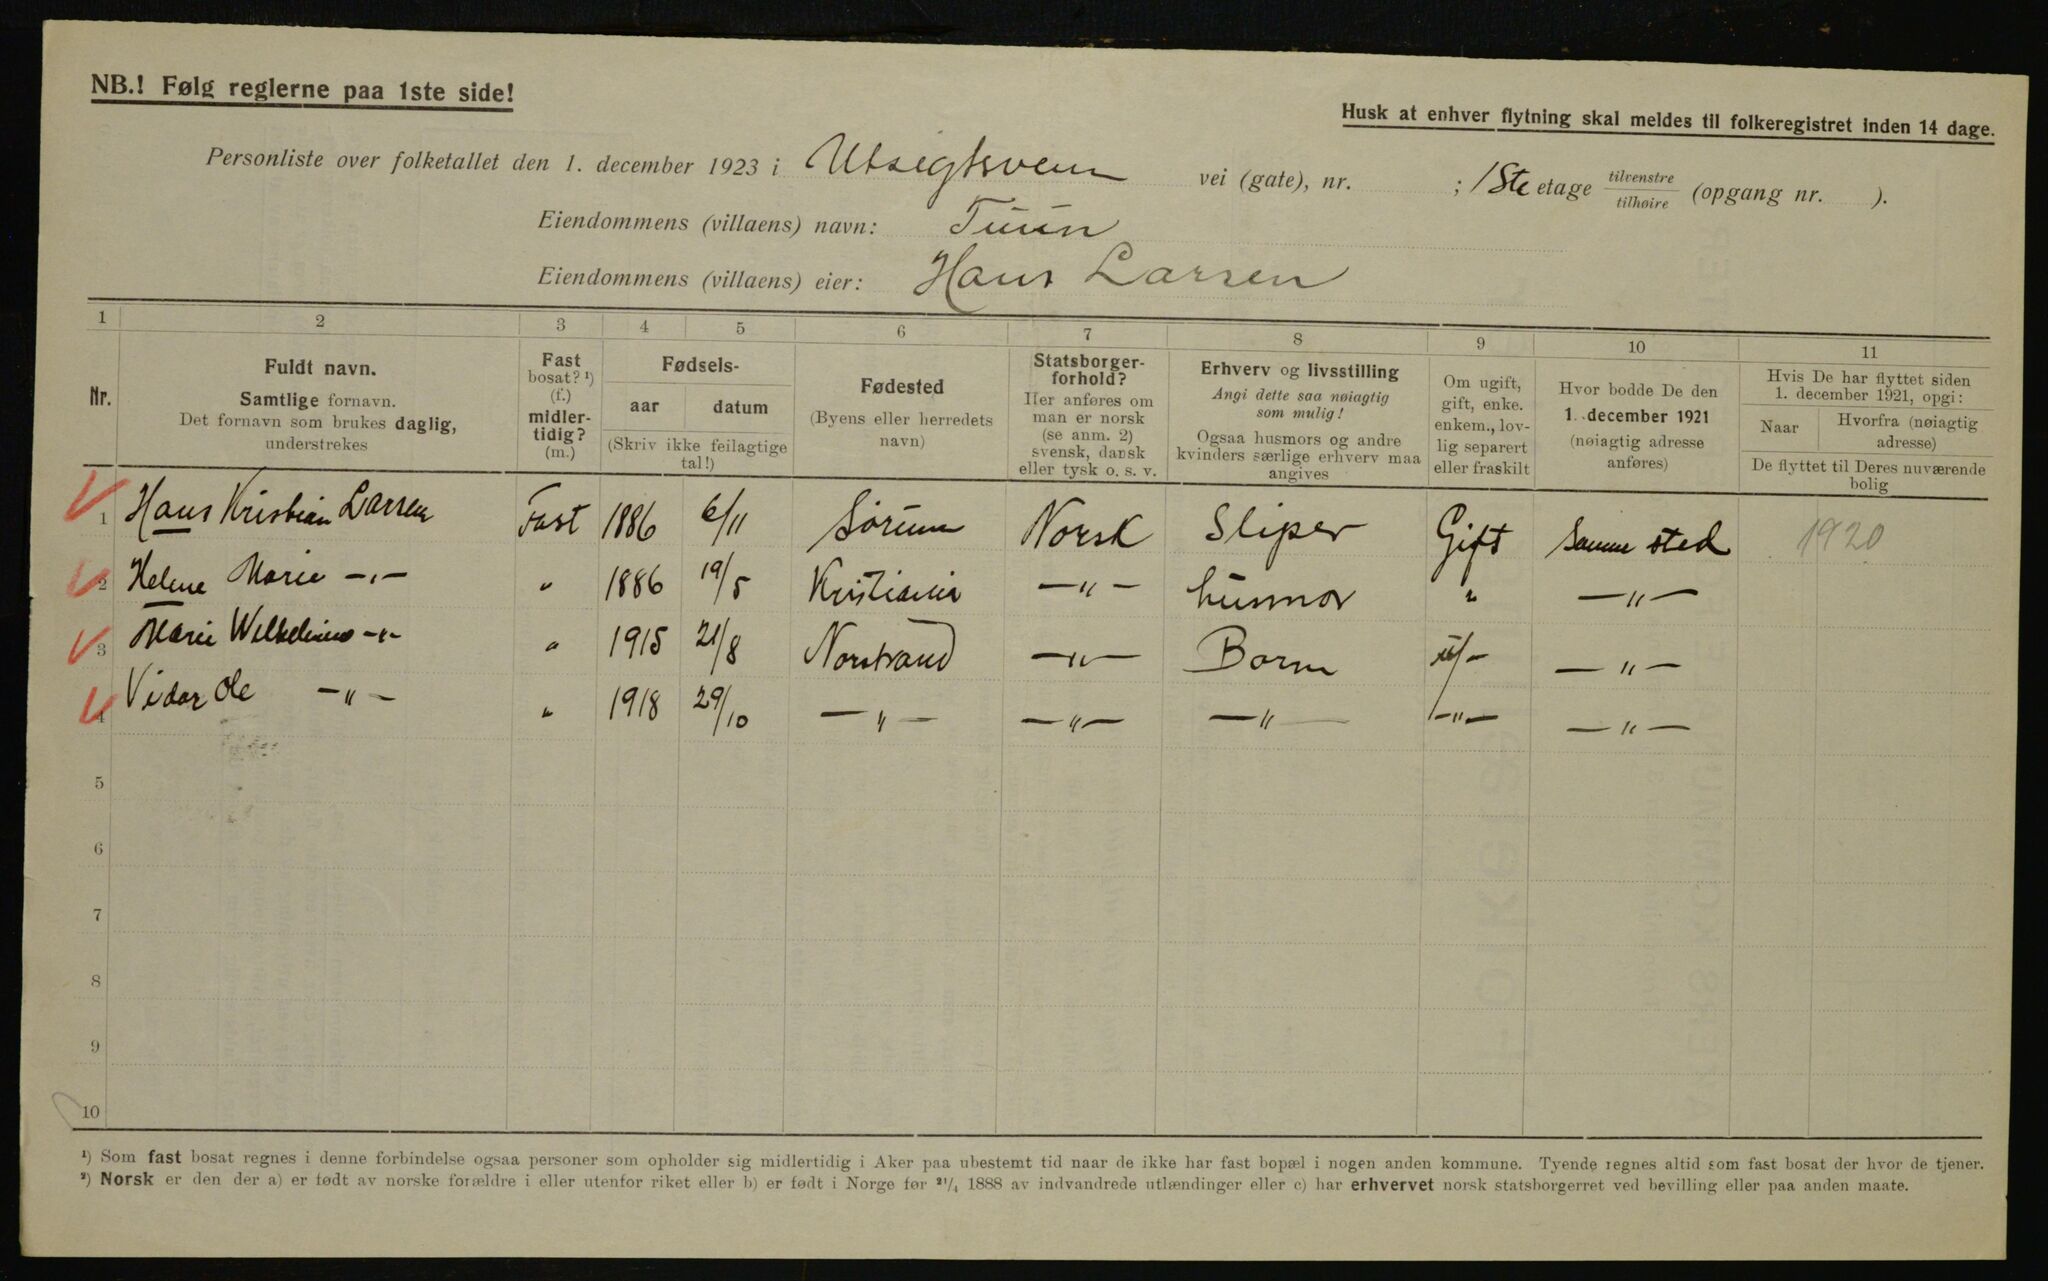 NB.! Følg reglerne paa 1ste side!
Husk at enhver flytning skal meldes til folkeregistret inden 14 dage.
Personliste over folketallet den 1. december 1923 i Utsigtsveien vei (gate), nr. ; 1ste etage tilvenstre tilhøire (opgang nr. ).
Eiendommens (villaens) navn: Tuun
Eiendommens (villaens) eier: Hans Larsen
1 2 3 4 5 6 7 8 9 10 11
Nr.
Fuldt navn.
Samtlige fornavn.
Det fornavn som brukes daglig,
understrekes
Fast
bosat? ¹)
(f.)
midler-
tidig?
(m.)
Fødsels-
aar datum
(Skriv ikke feilagtige
tal!)
Fødested
(Byens eller herredets
navn)
Statsborger-
forhold?
Her anføres om
man er norsk
(se anm. 2)
svensk, dansk
eller tysk o. s. v.
Erhverv og livsstilling
Angi dette saa nøiagtig
som mulig!
Ogsaa husmors og andre
kvinders særlige erhverv maa
angives
Om ugift,
gift, enke.
enkem., lov-
lig separert
eller fraskilt
Hvor bodde De den
1. december 1921
(nøiagtig adresse
anføres)
Hvis De har flyttet siden
1. december 1921, opgi:
Naar Hvorfra (nøiagtig
adresse)
De flyttet til Deres nuværende
bolig
1 Hans Kristian Larsen Fast 1886 6/11 Sørum Norsk Sliper Gift Samme sted 1920
2 Helene Marie -"- " 1886 19/5 Kristiania -"- husmor " -"-
3 Marie Wilhelmine -"- " 1915 21/8 Norstrand -"- Barn u/- -"-
4 Vidar Ole -"- " 1918 29/10 -"- -"- -"- -"- -"-
5
6
7
8
9
10
¹) Som fast bosat regnes i denne forbindelse ogsaa personer som opholder sig midlertidig i Aker paa ubestemt tid naar de ikke har fast bopæl i nogen anden kommune. Tyende regnes altid som fast bosat der hvor de tjener.
²) Norsk er den der a) er født av norske forældre i eller utenfor riket eller b) er født i Norge før 21/4 1888 av indvandrede utlændinger eller c) har erhvervet norsk statsborgerret ved bevilling eller paa anden maate.